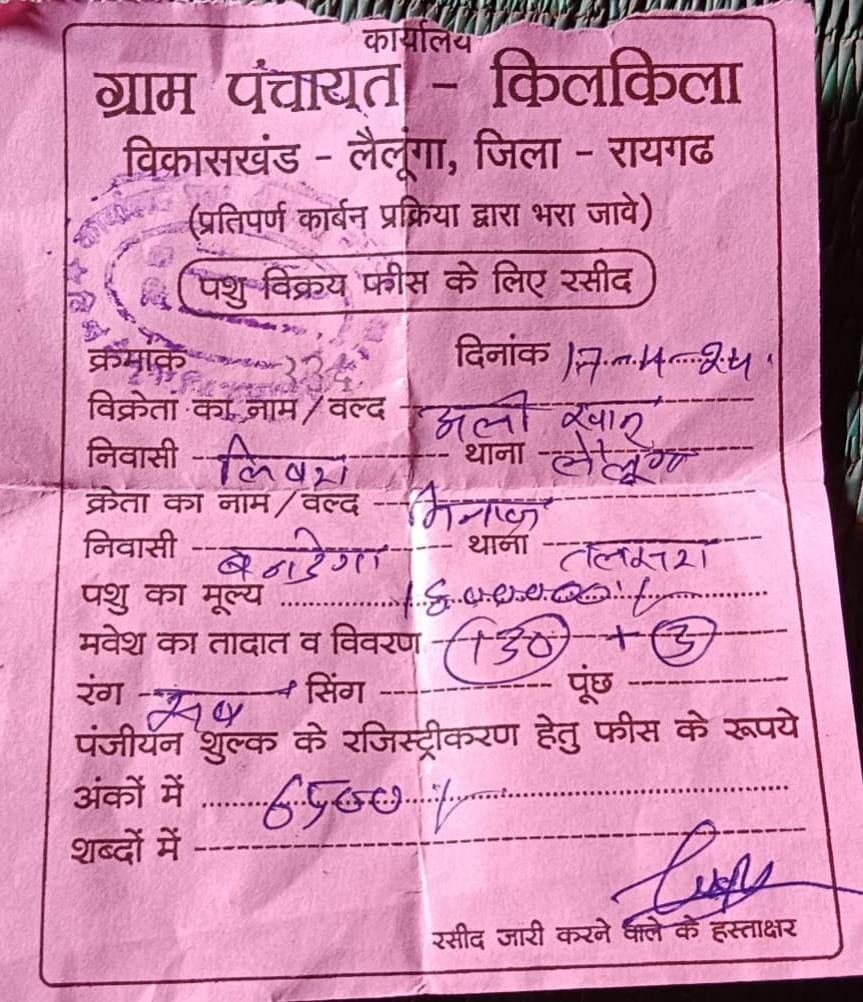 कार्यालय
ग्राम पंचायत - किलकिला
विकासखंड - लैलूंगा, जिला - रायगढ
(प्रतिपर्ण कार्बन प्रक्रिया द्वारा भरा जावे)
पशु विक्रय फीस के लिए रसीद
क्रमांक 334 दिनांक 17-4-24
विक्रेता का नाम / वल्द अली खान
निवासी लिबरा थाना लैलूंगा
क्रेता का नाम / वल्द मिनाज
निवासी बनडेगा थाना तलसरा
पशु का मूल्य
मवेश का तादात व विवरण 130 + 3
रंग सब सिंग पूंछ
पंजीयन शुल्क के रजिस्ट्रीकरण हेतु फीस के रूपये
अंकों में 6500/-
शब्दों में
रसीद जारी करने वाले के हस्ताक्षर